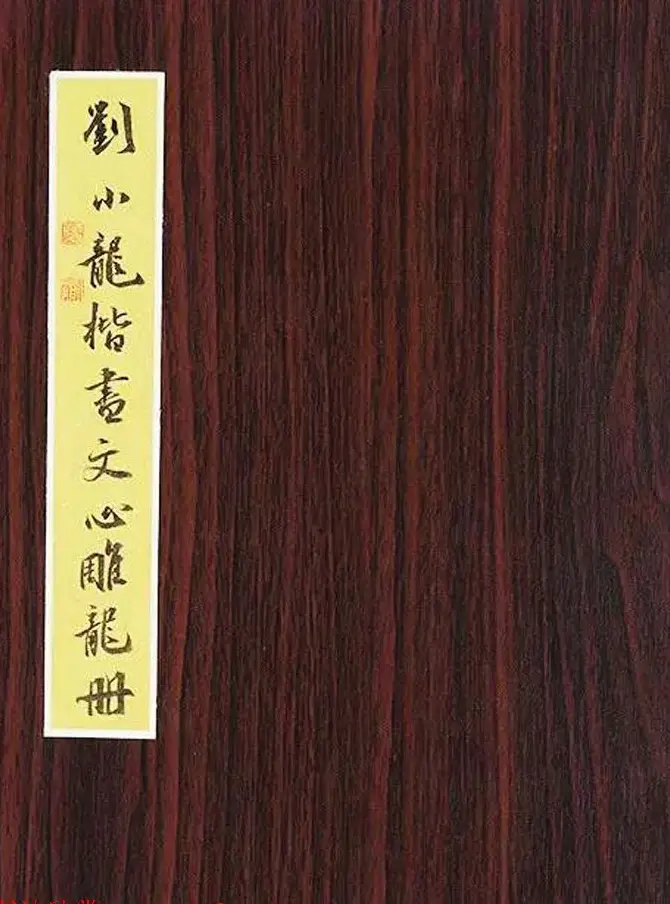 劉小龍楷書文心雕龍冊